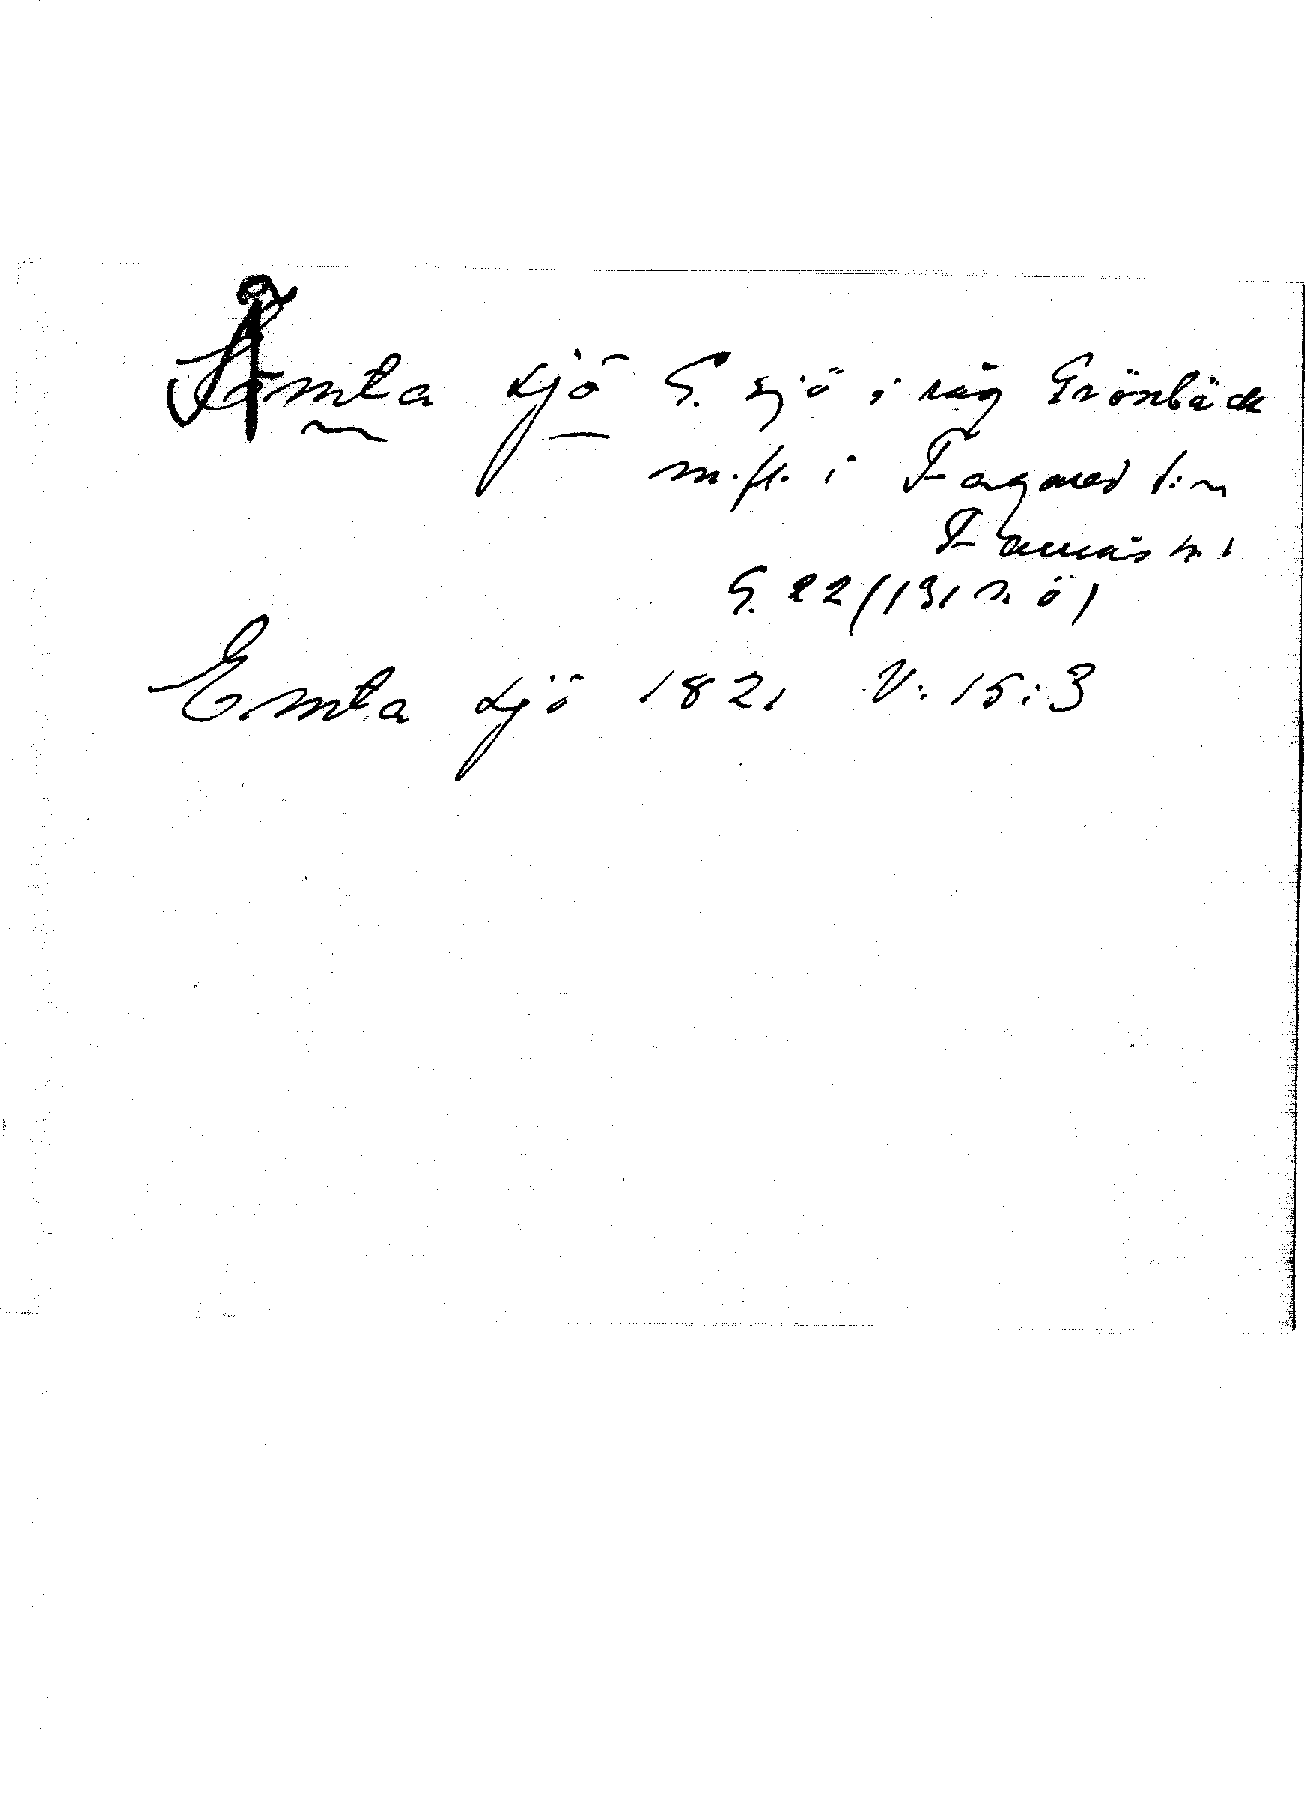 Åmta sjö G. sjö i råg Grönbäck
m.fl. i Fagared l:n
Fannås
G. 22 (131 n ö)
Emta sjö 1821 V: 15:3